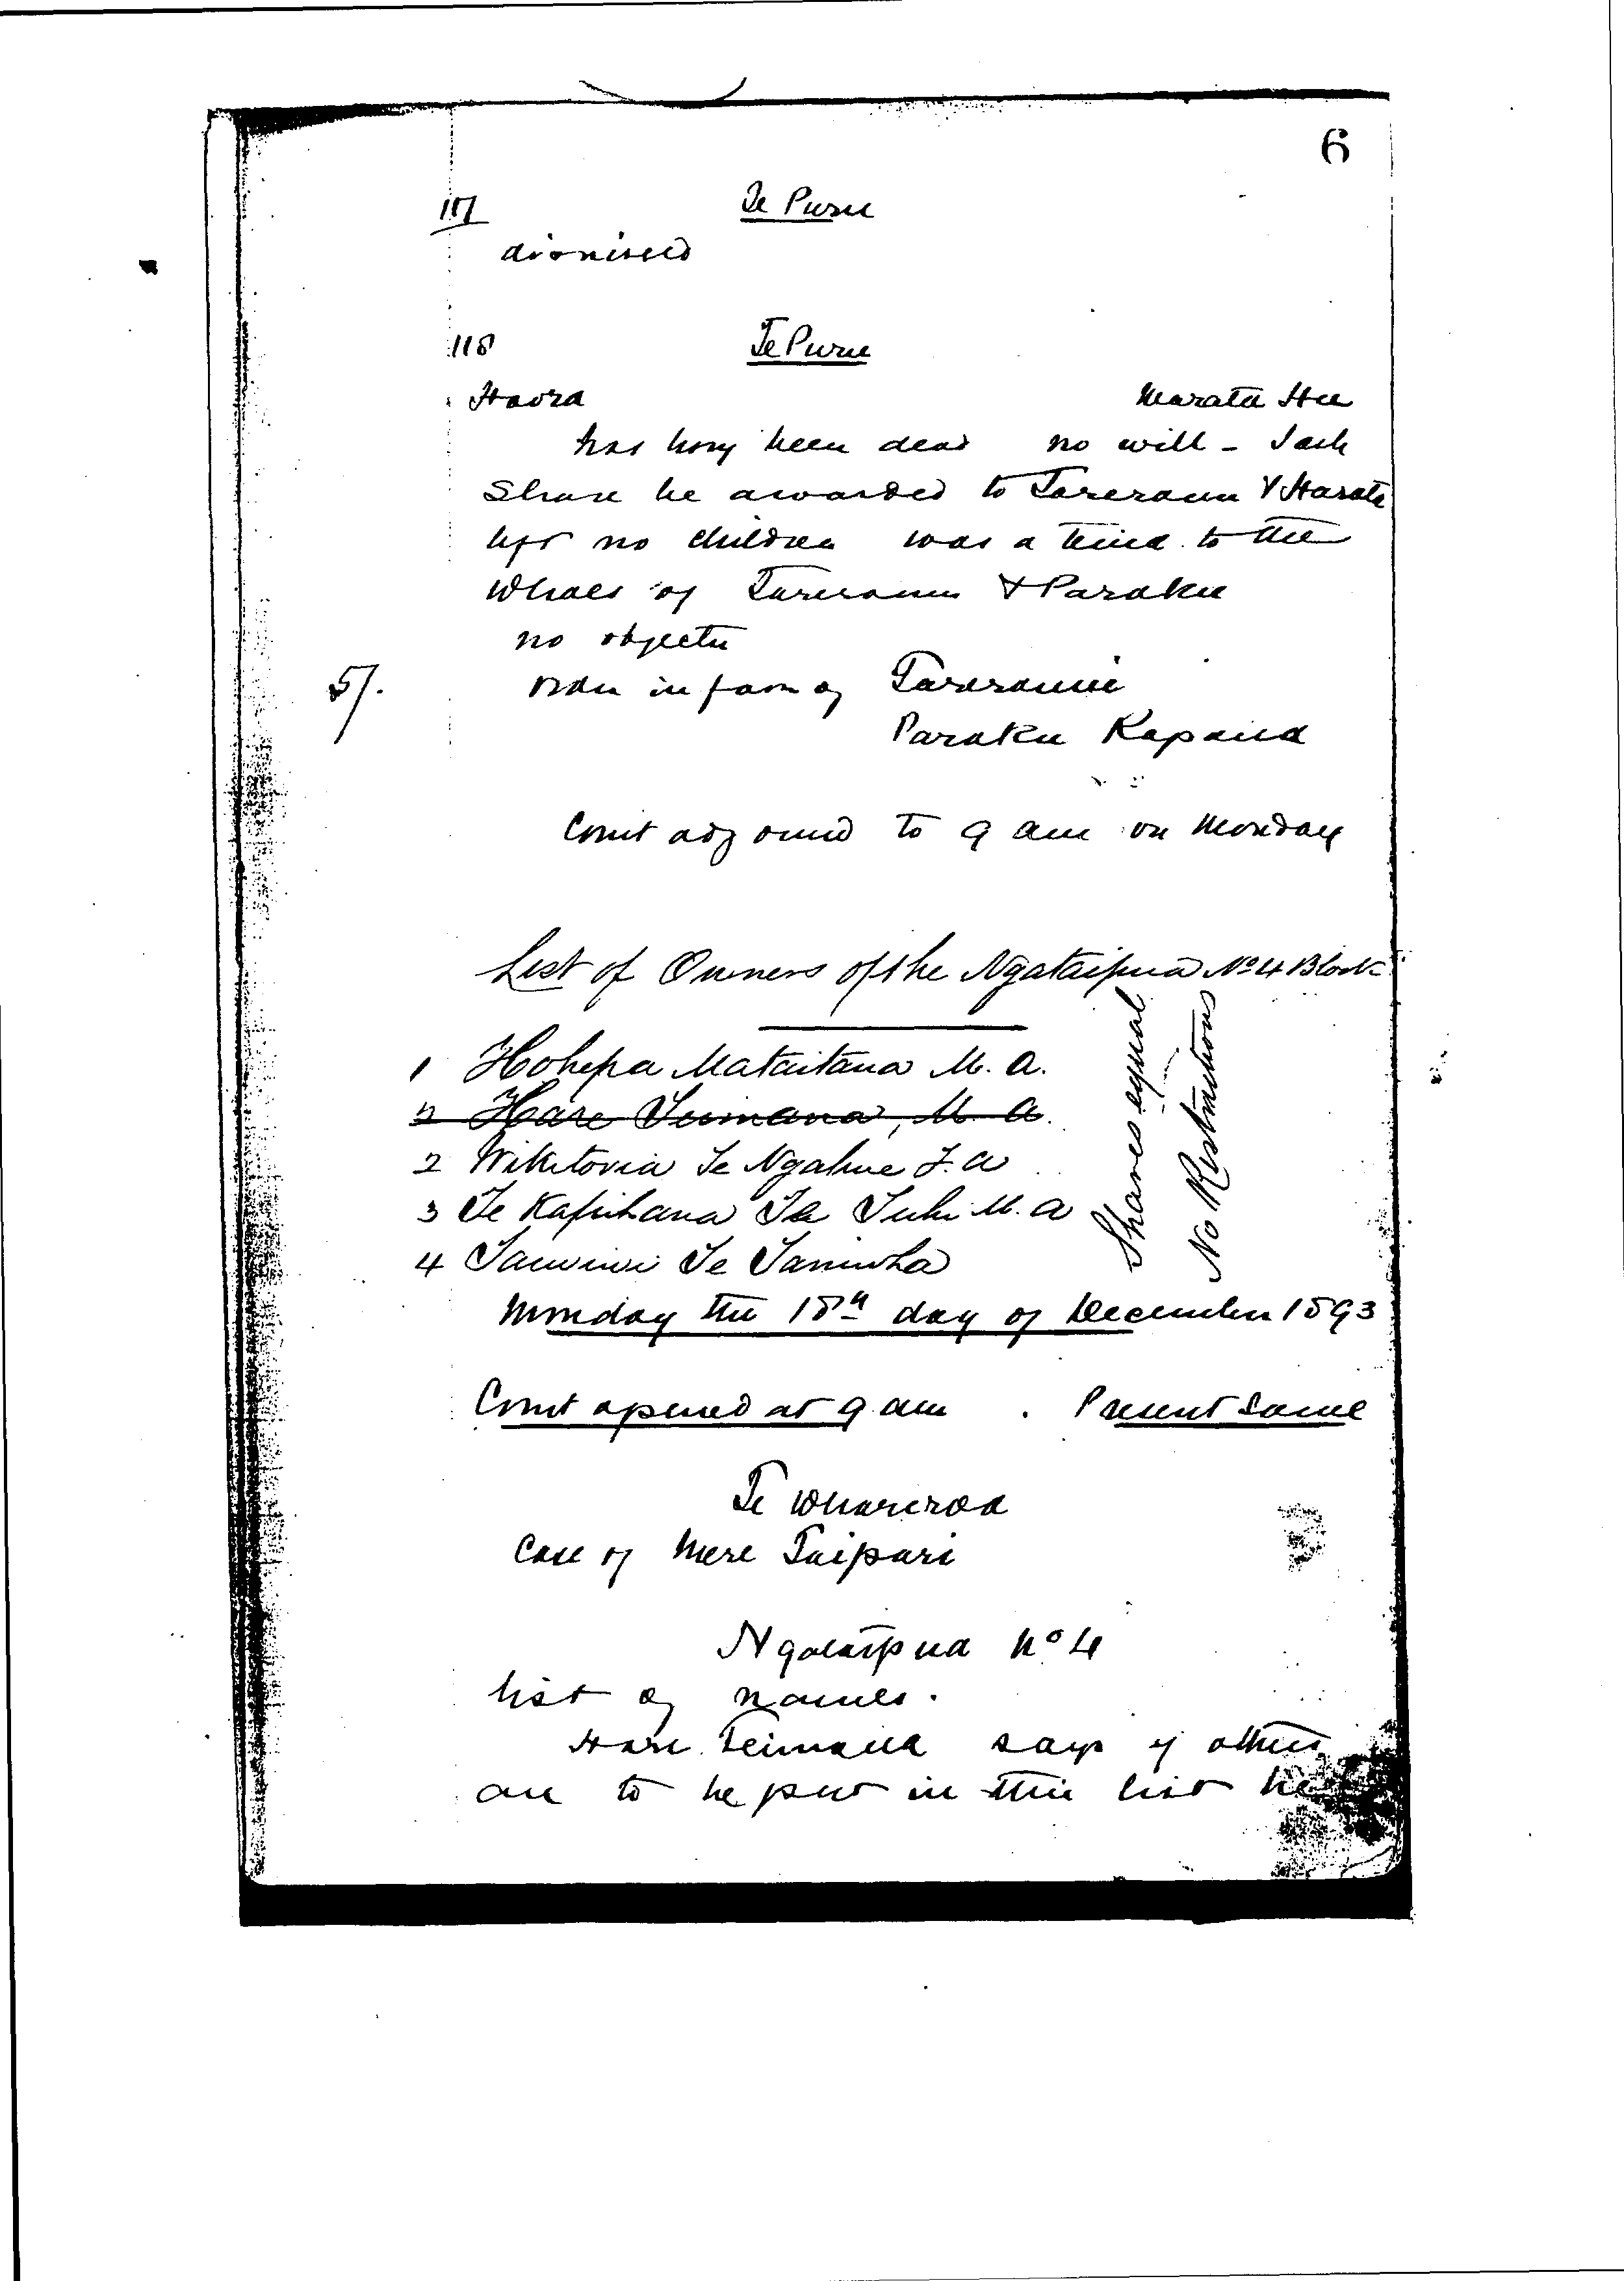 6
117 Te Puru
dismissed
118 Te Puru
Haora Marata Hu
has long been dead no will - I ask
Share be awarded to Tareranui & Harata
left no children was a teina to the
Whaea of Tareranui & Paraku
no objectn
5/. Order in favor of Tareranui
Paraku Kapana
Court adjourned to 9 am on Monday
List of Owners of the Ngataipua No 4 Block
1 Hohepa Mataitaua M. A.
2 Hare Teimana, M. A.
2 Wikitoria Te Ngahue F. A
3 Te Kapihana Te Tuhi M. A
4 Tauwiwi Te Taniwha
Shares equal
No Restrictions
Monday the 18th day of December 1893
Court opened at 9 am. Present Same
Te Whareroa
Case of Mere Taipari
Ngataipua No 4
list of names.
Hare Teimana says if others
are to be put in this list he